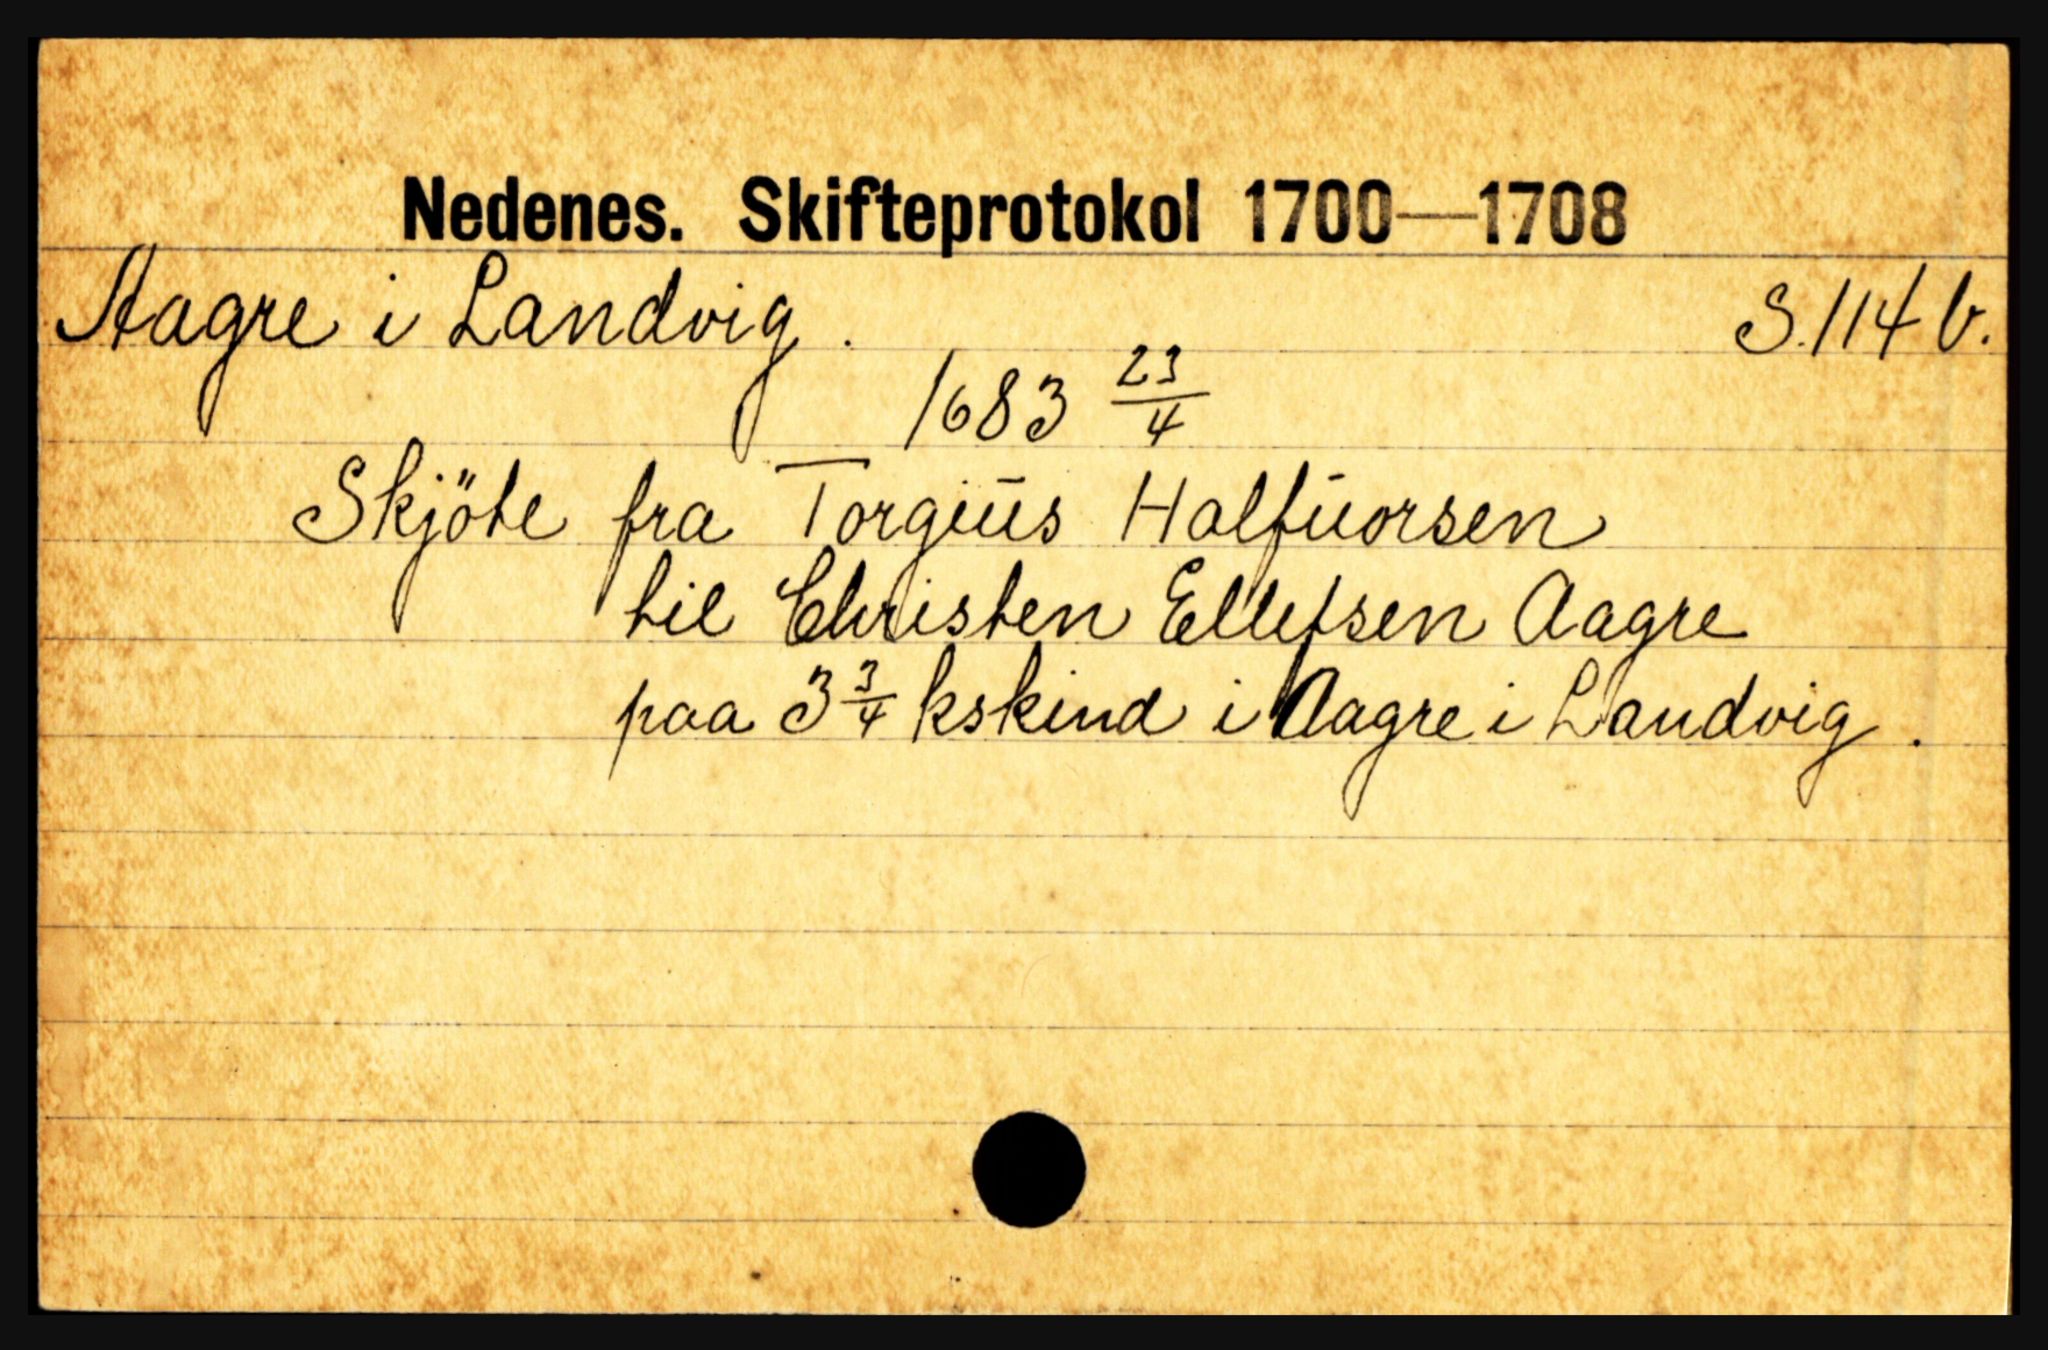 Nedenes. Skifteprotokol 1700—1708
Aagre i Landvig. S. 114 b.
1683 23/4
Skjöte fra Torgiūs Halfūorsen
til Christen Ellefsen Aagre
paa 3 3/4 kskind i Aagre i Landvig.